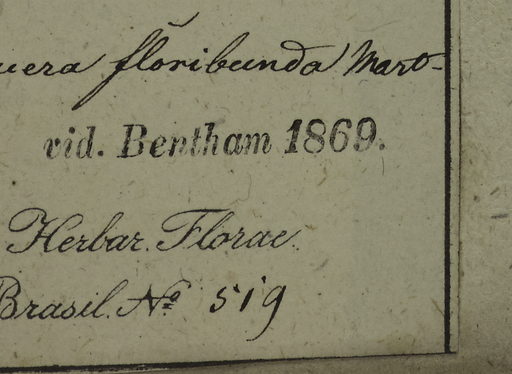 uera floribunda Mart-
vid. Bentham 1869.
Herbar. Florae
Brasil. Nº 519